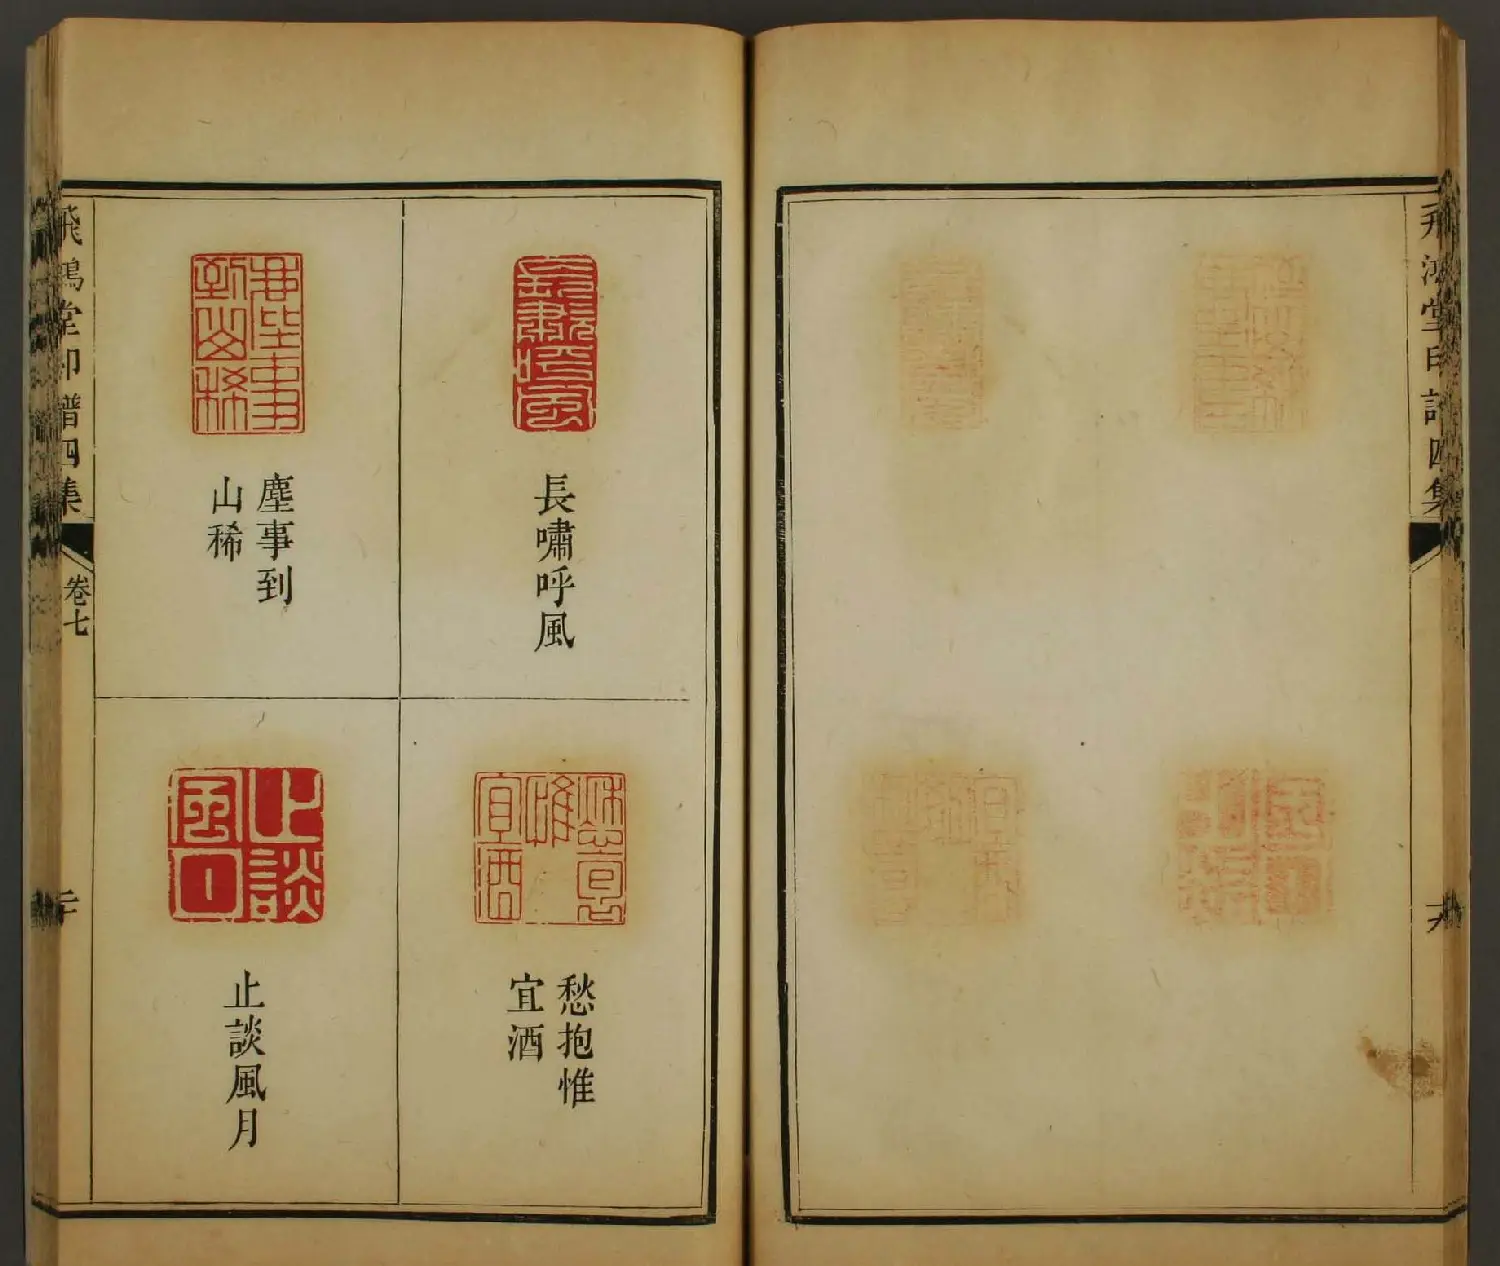 飛鴻堂印譜四集
長嘯呼風
塵事到
山稀
愁抱惟
宜酒
止談風月
飛鴻堂印譜四集
卷七